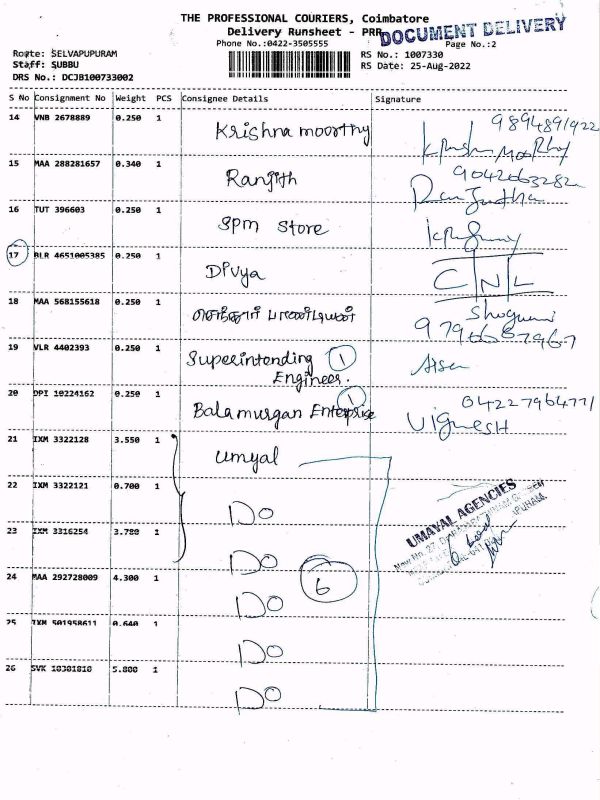 THE PROFESSIONAL COURIERS, Coimbatore
Delivery Runsheet - PRR
DOCUMENT DELIVERY
Phone No.:0422-3505555
Page No.:2
Route: SELVAPUPURAM
RS No.: 1007330
Staff: SUBBU
RS Date: 25-Aug-2022
DRS No.: DCJB100733002
S No Consignment No Weight PCS Consignee Details Signature
14 VNB 2678889 0.250 1 Krishna moorthy 9894891922
15 MAA 288281657 0.340 1 Ranjith 9042063282
16 TUT 396603 0.250 1 SPM Store
17 BLR 4651005385 0.250 1 Divya C N L
18 MAA 568155618 0.250 1 செந்தூர் பாண்டியன்
9796687967
19 VLR 4402393 0.250 1 Superintending 1
Engineer.
20 DPI 10224162 0.250 1 Balamurgan Enterprise 1 04227964771
Vignesh
21 IXM 3322128 3.550 1 Umyal
22 IXM 3322121 0.700 1 Do
23 IXM 3316254 3.780 1 Do
6
24 MAA 292728009 4.300 1 Do
25 IXM 501958611 0.640 1 Do
26 SVK 10301810 5.800 1 Do
UMAYAL AGENCIES